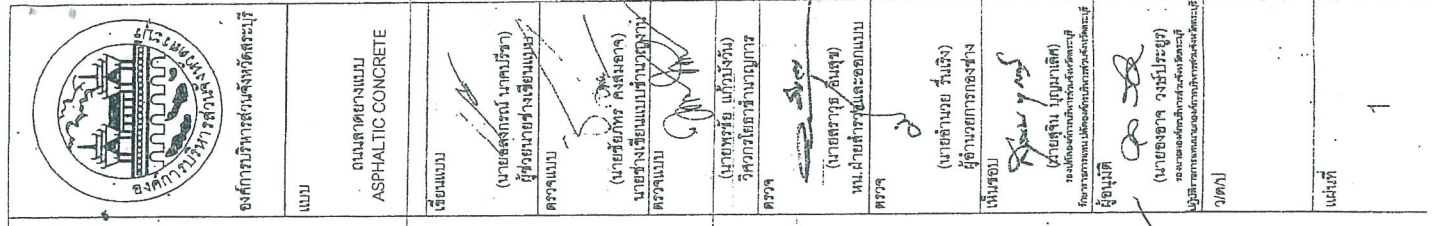 องค์การบริหารส่วนจังหวัดสระบุรี
องค์การบริหารส่วนจังหวัดสระบุรี
แบบ
ถนนลาดยางแบบ
ASPHALTIC CONCRETE
เขียนแบบ
(นายอลงกรณ์ นาคปรีชา)
ผู้ช่วยนายช่างเขียนแบบ
ตรวจแบบ
(นายชัยภัทร คงสมอาจ)
นายช่างเขียนแบบชำนาญงาน
ตรวจแบบ
(นายพรชัย แก้วบังวัน)
วิศวกรโยธาชำนาญการ
ตรวจ
(นายตราวุธ อินสุข)
หน.ฝ่ายสำรวจและออกแบบ
ตรวจ
(นายอำนวย รื่นเริง)
ผู้อำนวยการกองช่าง
เห็นชอบ
(นายสุจิน บุญมาเลิศ)
รองปลัดองค์การบริหารส่วนจังหวัดสระบุรี
รักษาราชการแทน ปลัดองค์การบริหารส่วนจังหวัดสระบุรี
ผู้อนุมัติ
(นายองอาจ วงษ์ประยูร)
รองนายกองค์การบริหารส่วนจังหวัดสระบุรี
ปฏิบัติราชการแทนนายกองค์การบริหารส่วนจังหวัดสระบุรี
ว/ด/ป
แผ่นที่
1